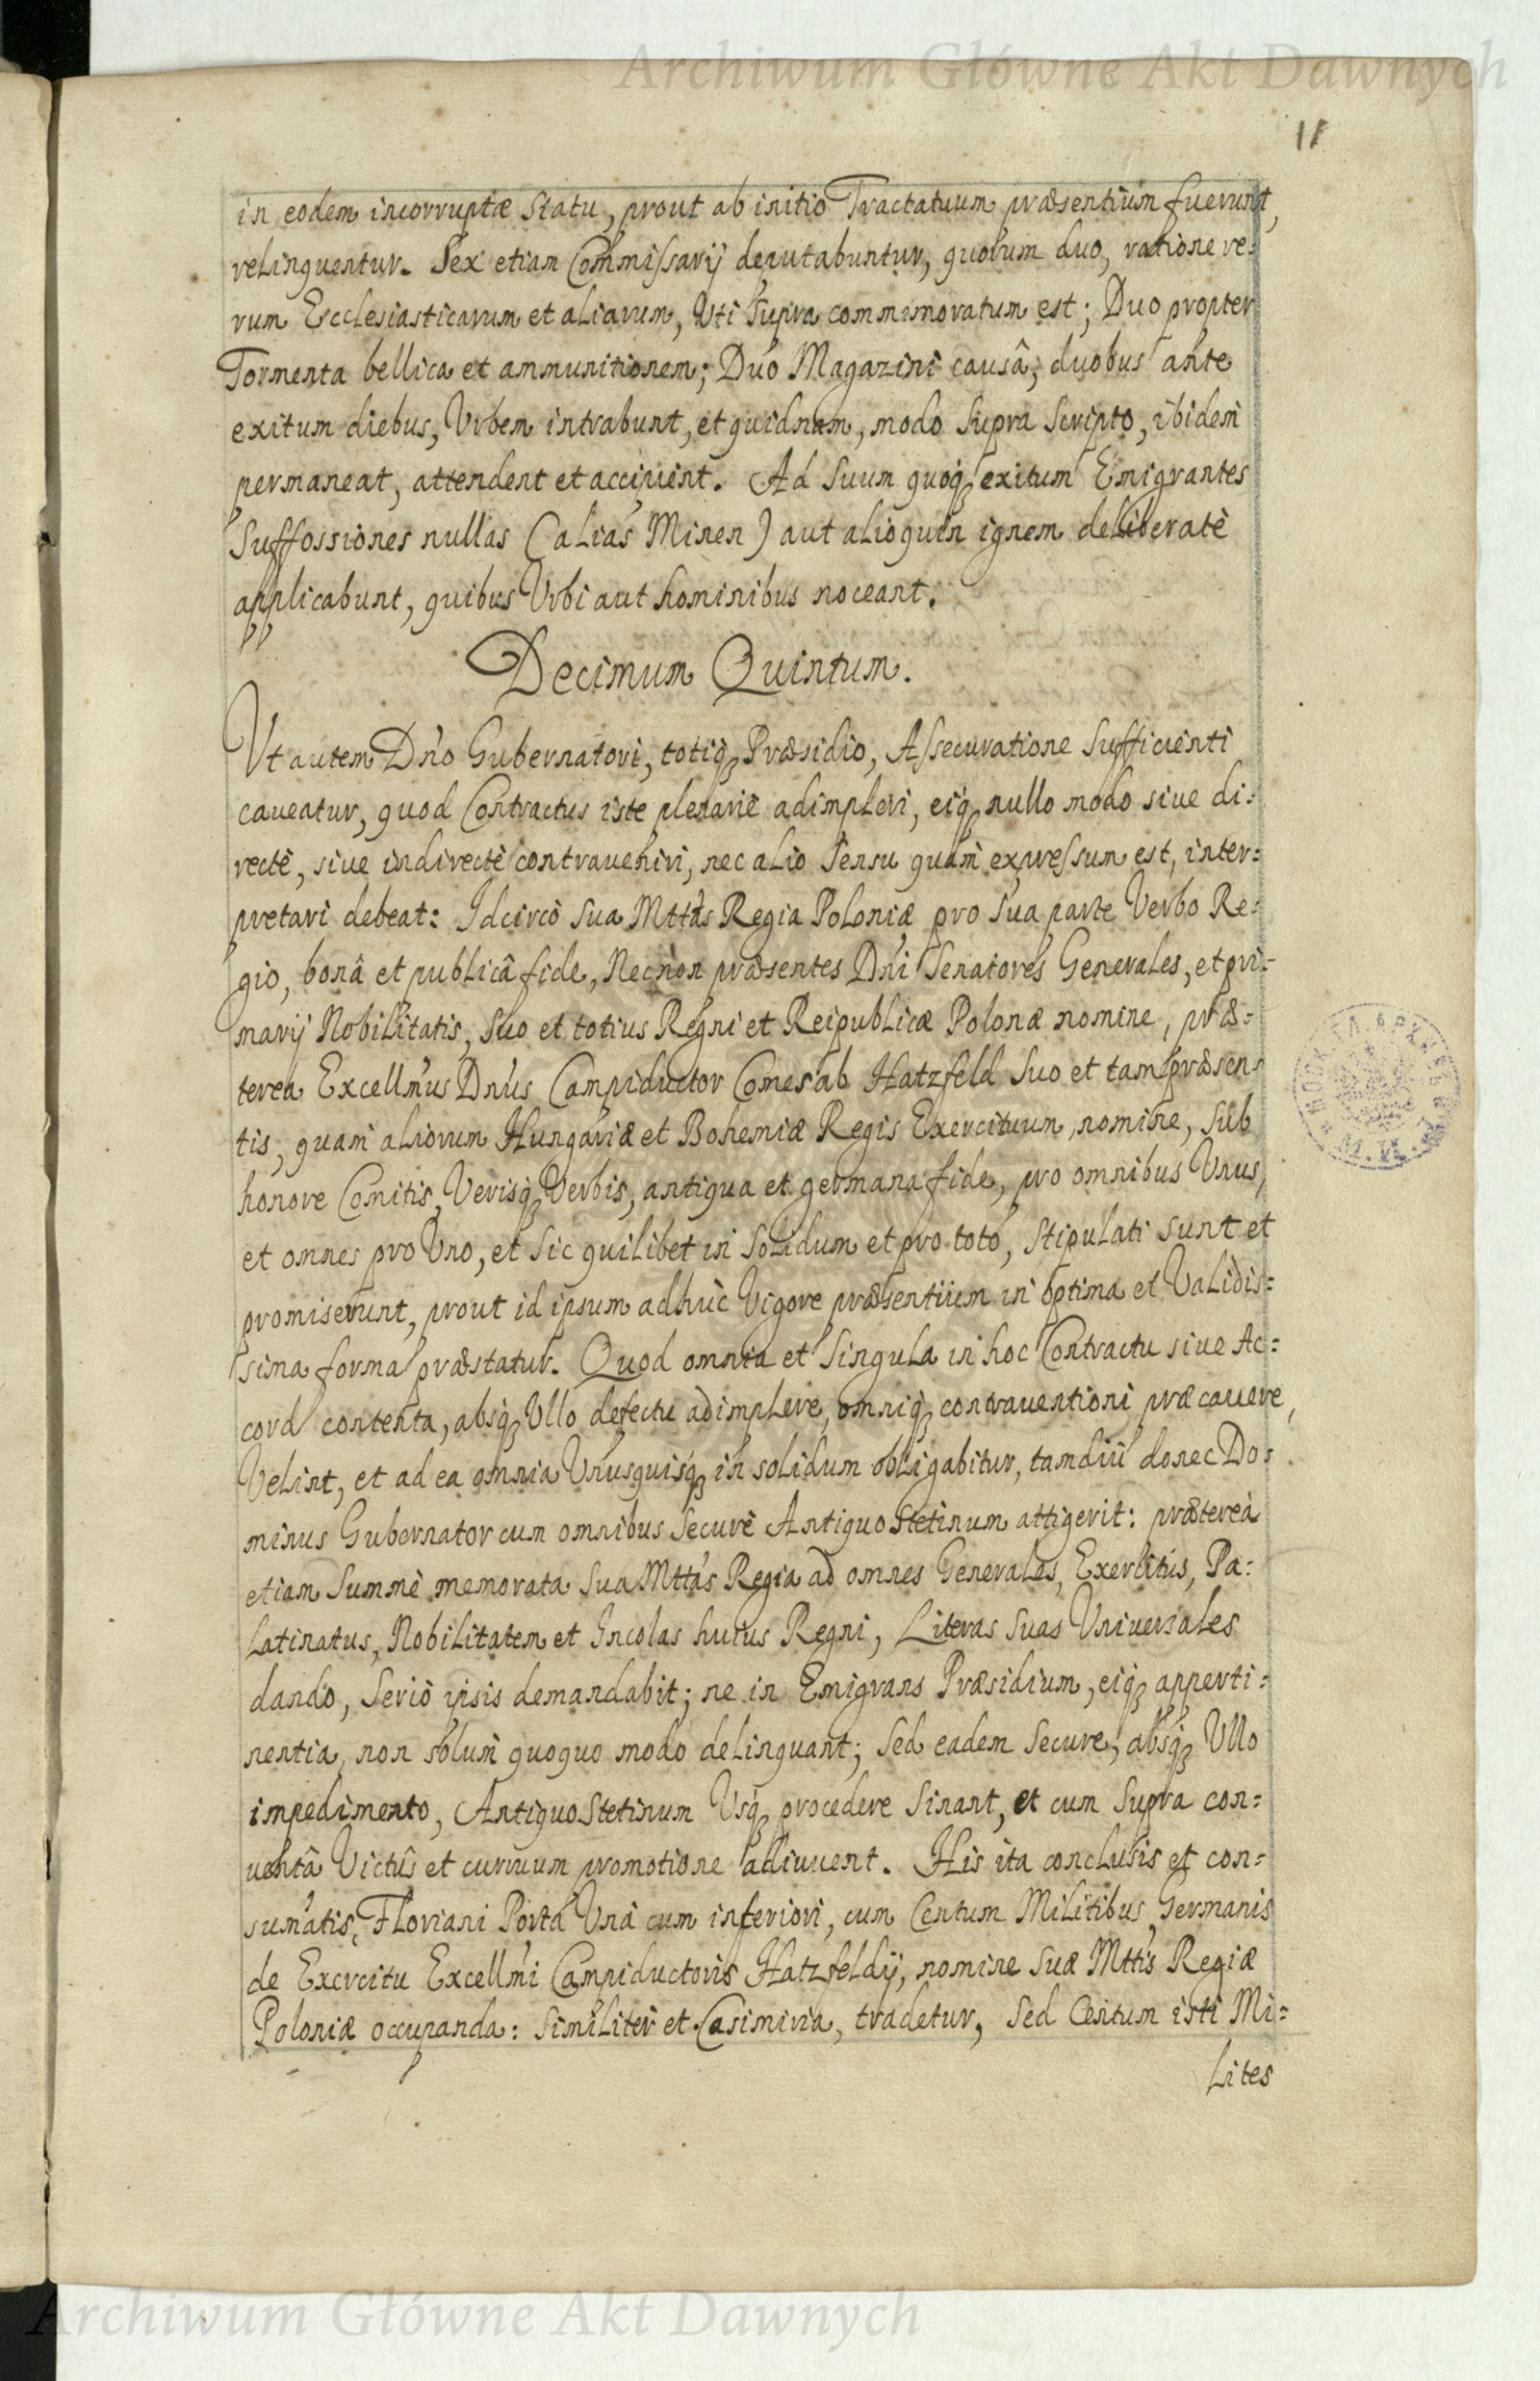 Archiwum Główne Akt Dawnych
11
in eodem incorruptæ statu, prout ab initio Tractatuum præsentium fuerunt,
relinquentur. Sex etiam Commissarij deputabuntur, quorum duo, ratione re=
rum Ecclesiasticarum et aliarum, Uti supra commimoratum est; Duo propter
Tormenta bellica et ammunitionem; Duo Magazini causâ, duobus ante
exitum diebus, Urbem intrabunt, et quidnam, modo supra scripto, ibidem
permaneat, attendent et accipient. Ad suum quoq, exitum Emigrantes
Suffossiones nullas (alias Minen) aut alioquin ignem deliberatè
applicabunt, quibus Urbi aut hominibus noceant.
Decimum Quintum.
Ut autem Dño Gubernatori, totiq, Præsidio, Assecuratione sufficienti
caveatur, quod Contractus iste plenariè adimpleri, eiq, nullo modo sive di=
rectè, sive indirectè contraveniri, nec alio sensu quam expressum est, inter=
pretari debeat: Idcircò sua Mttas Regia Poloniæ pro sua parte Verbo Re=
gio, bonâ et publicâ fide, Necnon præsentes Dñi Senatores Generales, et pri=
marij Nobilitatis, suo et totius Regni et Reipublicæ Polonæ nomine, præ=
terea Excellm̃us Dñus Campiductor Comes ab Hatzfeld suo et tam præsen=
tis, quam aliorum Hungariæ et Bohemiæ Regis Exercituum nomine, sub
honore Comitis, Verisq, Verbis, antiqua et germana fide, pro omnibus Unus,
et omnes pro Uno, et sic quilibet in solidum et pro toto, stipulati sunt et
promiserunt, prout id ipsum adhuc Vigore præsentium in optima et Validis=
sima forma præstatur. Quod omnia et singula in hoc Contractu sive Ac=
cord contenta, absq, Ullo defectu adimplere, omniq, contraventioni præcavere,
Velint, et ad ea omnia Unusquisq, in solidum obligabitur, tamdiu donec Do=
minus Gubernator cum omnibus securè Antiquo Stetinum attigerit: prætereà
etiam summè memorata sua Mttas Regia ad omnes Generales, Exercitus, Pa=
latinatus, Nobilitatem et Incolas huius Regni, Literas suas Universales
dando, seriò ipsis demandabit; ne in Emigrans Præsidium, eiq, apperti=
nentia, non solum quoquo modo delinquant; sed eadem secure, absq, Ullo
impedimento, Antiquo Stetinum Usq, procedere sinant, et cum supra con=
ventâ Victûs et curruum promotione adiuvent. His ita conclusis et con=
sumatis, Floriani Porta Unà cum inferiori, cum Centum Militibus Germanis
de Exercitu Excellm̃i Campiductoris Hatzfeldij, nomine suæ Mttis Regiæ
Poloniæ occupanda: similiter et Casimiria, tradetur, sed Centum isti Mi=
lites
Archiwum Główne Akt Dawnych